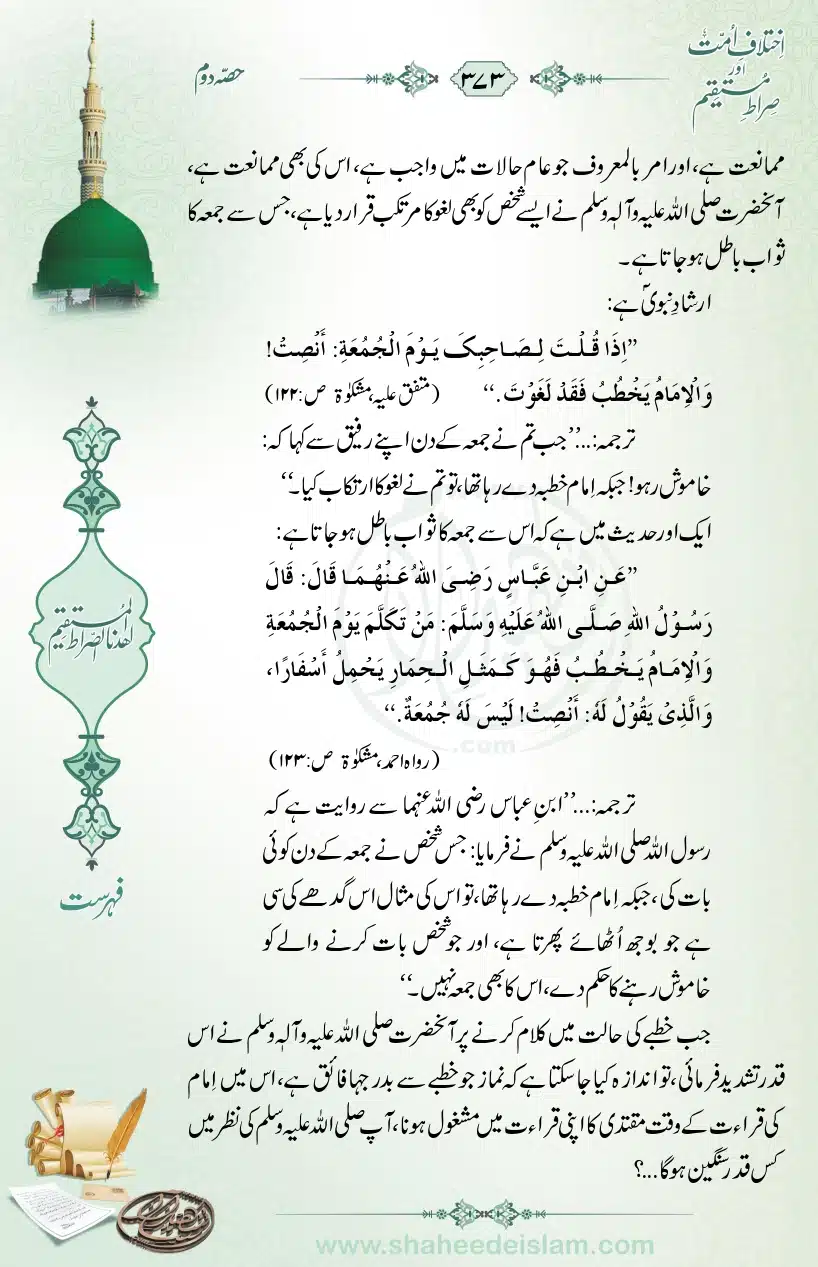 اِختلافِ اُمّت
اور
صِراطِ مُستقیم
۳۷۳
حصّہ دوم
ممانعت ہے، اور امر بالمعروف جو عام حالات میں واجب ہے، اس کی بھی ممانعت ہے،
آنحضرت صلی اللہ علیہ وآلہٖ وسلم نے ایسے شخص کو بھی لغو کا مرتکب قرار دیا ہے، جس سے جمعہ کا
ثواب باطل ہوجاتا ہے۔
ارشادِ نبویؐ ہے:
”اِذَا قُلْتَ لِصَاحِبِکَ یَوْمَ الْجُمُعَةِ: أَنْصِتْ!
وَالْاِمَامُ یَخْطُبُ فَقَدْ لَغَوْتَ.“ (متفق علیہ، مشکوٰۃ ص:۱۲۲)
ترجمہ:...”جب تم نے جمعہ کے دن اپنے رفیق سے کہا کہ:
خاموش رہو! جبکہ اِمام خطبہ دے رہا تھا، تو تم نے لغو کا ارتکاب کیا۔“
ایک اور حدیث میں ہے کہ اس سے جمعہ کا ثواب باطل ہوجاتا ہے:
”عَنِ ابْنِ عَبَّاسٍ رَضِیَ اللهُ عَنْهُمَا قَالَ: قَالَ
رَسُوْلُ اللهِ صَلَّی اللهُ عَلَیْهِ وَسَلَّمَ: مَنْ تَکَلَّمَ یَوْمَ الْجُمُعَةِ
وَالْاِمَامُ یَخْطُبُ فَهُوَ کَمَثَلِ الْحِمَارِ یَحْمِلُ أَسْفَارًا،
وَالَّذِیْ یَقُوْلُ لَهٗ: أَنْصِتْ! لَیْسَ لَهٗ جُمُعَةٌ.“
(رواہ احمد، مشکوٰۃ ص:۱۲۳)
ترجمہ:...”ابنِ عباس رضی اللہ عنہما سے روایت ہے کہ
رسول اللہ صلی اللہ علیہ وسلم نے فرمایا: جس شخص نے جمعہ کے دن کوئی
بات کی، جبکہ اِمام خطبہ دے رہا تھا، تو اس کی مثال اس گدھے کی سی
ہے جو بوجھ اُٹھائے پھرتا ہے، اور جو شخص بات کرنے والے کو
خاموش رہنے کا حکم دے، اس کا بھی جمعہ نہیں۔“
جب خطبے کی حالت میں کلام کرنے پر آنحضرت صلی اللہ علیہ وآلہٖ وسلم نے اس
قدر تشدید فرمائی، تو اندازہ کیا جاسکتا ہے کہ نماز جو خطبے سے بدرجہا فائق ہے، اس میں اِمام
کی قراءت کے وقت مقتدی کا اپنی قراءت میں مشغول ہونا، آپ صلی اللہ علیہ وسلم کی نظر میں
کس قدر سنگین ہوگا...؟
اهدنا الصراط المستقیم
فہرست
.com
www.shaheedeislam.com